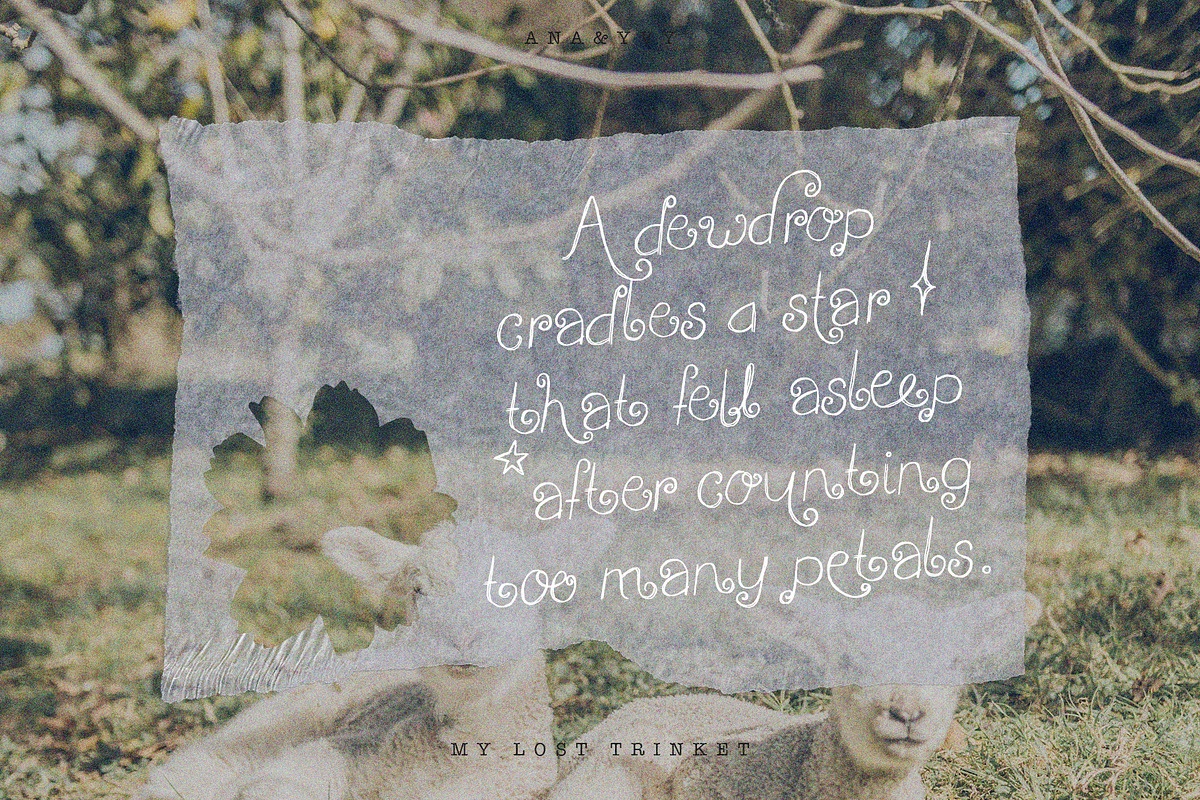 ANA&YVY
A dewdrop
cradles a star
that fell asleep
after counting
too many petals.
MY LOST TRINKET